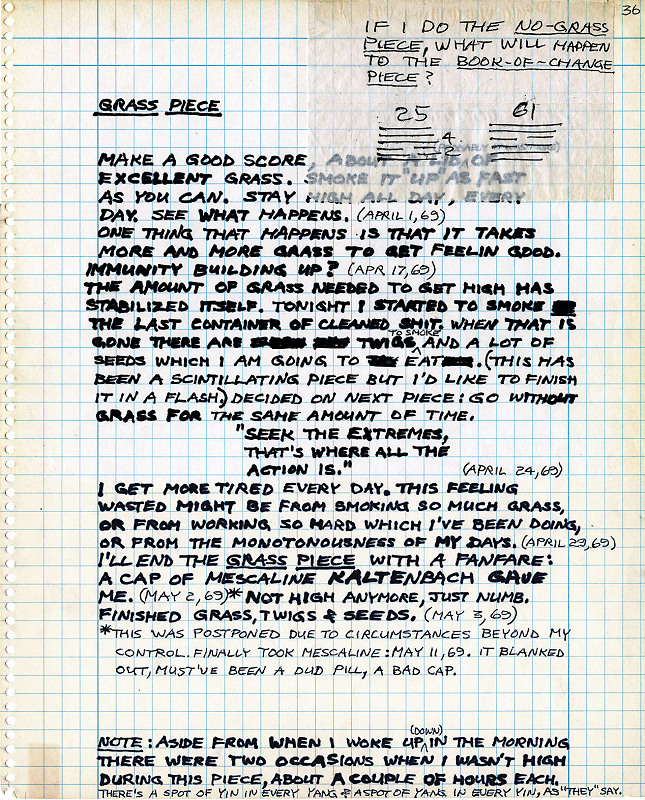 36
IF I DO THE NO-GRASS
PIECE, WHAT WILL HAPPEN
TO THE BOOK-OF-CHANGE
PIECE?
25 61
4
2
GRASS PIECE
MAKE A GOOD SCORE, ABOUT A LID OF
EXCELLENT GRASS. SMOKE IT "UP" AS FAST
AS YOU CAN. STAY HIGH ALL DAY, EVERY
DAY. SEE WHAT HAPPENS. (APRIL 1,69)
ONE THING THAT HAPPENS IS THAT IT TAKES
MORE AND MORE GRASS TO GET FEELIN GOOD.
IMMUNITY BUILDING UP? (APR 17,69)
THE AMOUNT OF GRASS NEEDED TO GET HIGH HAS
STABILIZED ITSELF. TONIGHT I STARTED TO SMOKE
THE LAST CONTAINER OF CLEANED SHIT. WHEN THAT IS
GONE THERE ARE TWIGS TO SMOKE AND A LOT OF
SEEDS WHICH I AM GOING TO EAT. (THIS HAS
BEEN A SCINTILLATING PIECE BUT I'D LIKE TO FINISH
IT IN A FLASH.) DECIDED ON NEXT PIECE: GO WITHOUT
GRASS FOR THE SAME AMOUNT OF TIME.
"SEEK THE EXTREMES,
THAT'S WHERE ALL THE
ACTION IS." (APRIL 24,69)
I GET MORE TIRED EVERY DAY. THIS FEELING
WASTED MIGHT BE FROM SMOKING SO MUCH GRASS,
OR FROM WORKING SO HARD WHICH I'VE BEEN DOING,
OR FROM THE MONOTONOUSNESS OF MY DAYS. (APRIL 29,69)
I'LL END THE GRASS PIECE WITH A FANFARE:
A CAP OF MESCALINE KALTENBACH GAVE
ME. (MAY 2,69)* NOT HIGH ANYMORE, JUST NUMB.
FINISHED GRASS, TWIGS & SEEDS. (MAY 3,69)
*THIS WAS POSTPONED DUE TO CIRCUMSTANCES BEYOND MY
CONTROL. FINALLY TOOK MESCALINE: MAY 11,69. IT BLANKED
OUT, MUST'VE BEEN A DUD PILL, A BAD CAP.
NOTE: ASIDE FROM WHEN I WOKE UP (DOWN) IN THE MORNING
THERE WERE TWO OCCASIONS WHEN I WASN'T HIGH
DURING THIS PIECE, ABOUT A COUPLE OF HOURS EACH.
THERE'S A SPOT OF YIN IN EVERY YANG & A SPOT OF YANG IN EVERY YIN, AS "THEY" SAY.